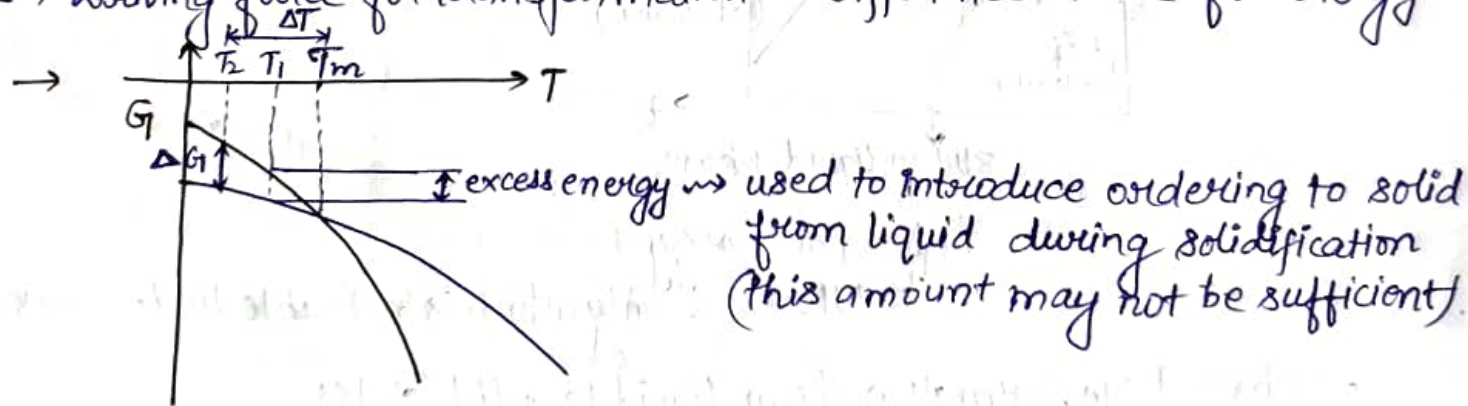 ΔT
T2 T1 Tm
→ T
G
ΔG
excess energy ⇝ used to introduce ordering to solid
from liquid during solidification
(this amount may not be sufficient).